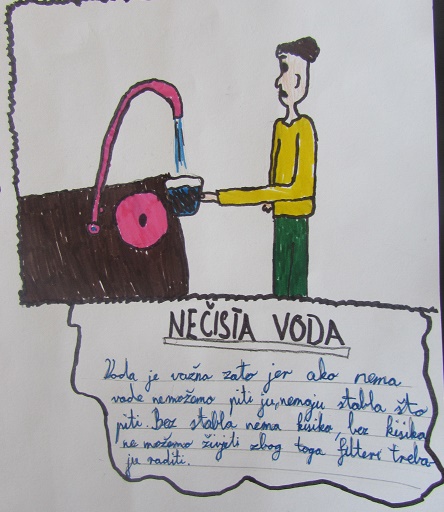 NEČISTA VODA
Voda je važna zato jer ako nema
vode nemožemo piti ju, nemaju stabla što
piti. Bez stabla nema kisika, bez kisika
ne možemo živjeti zbog toga filteri treba-
ju raditi.